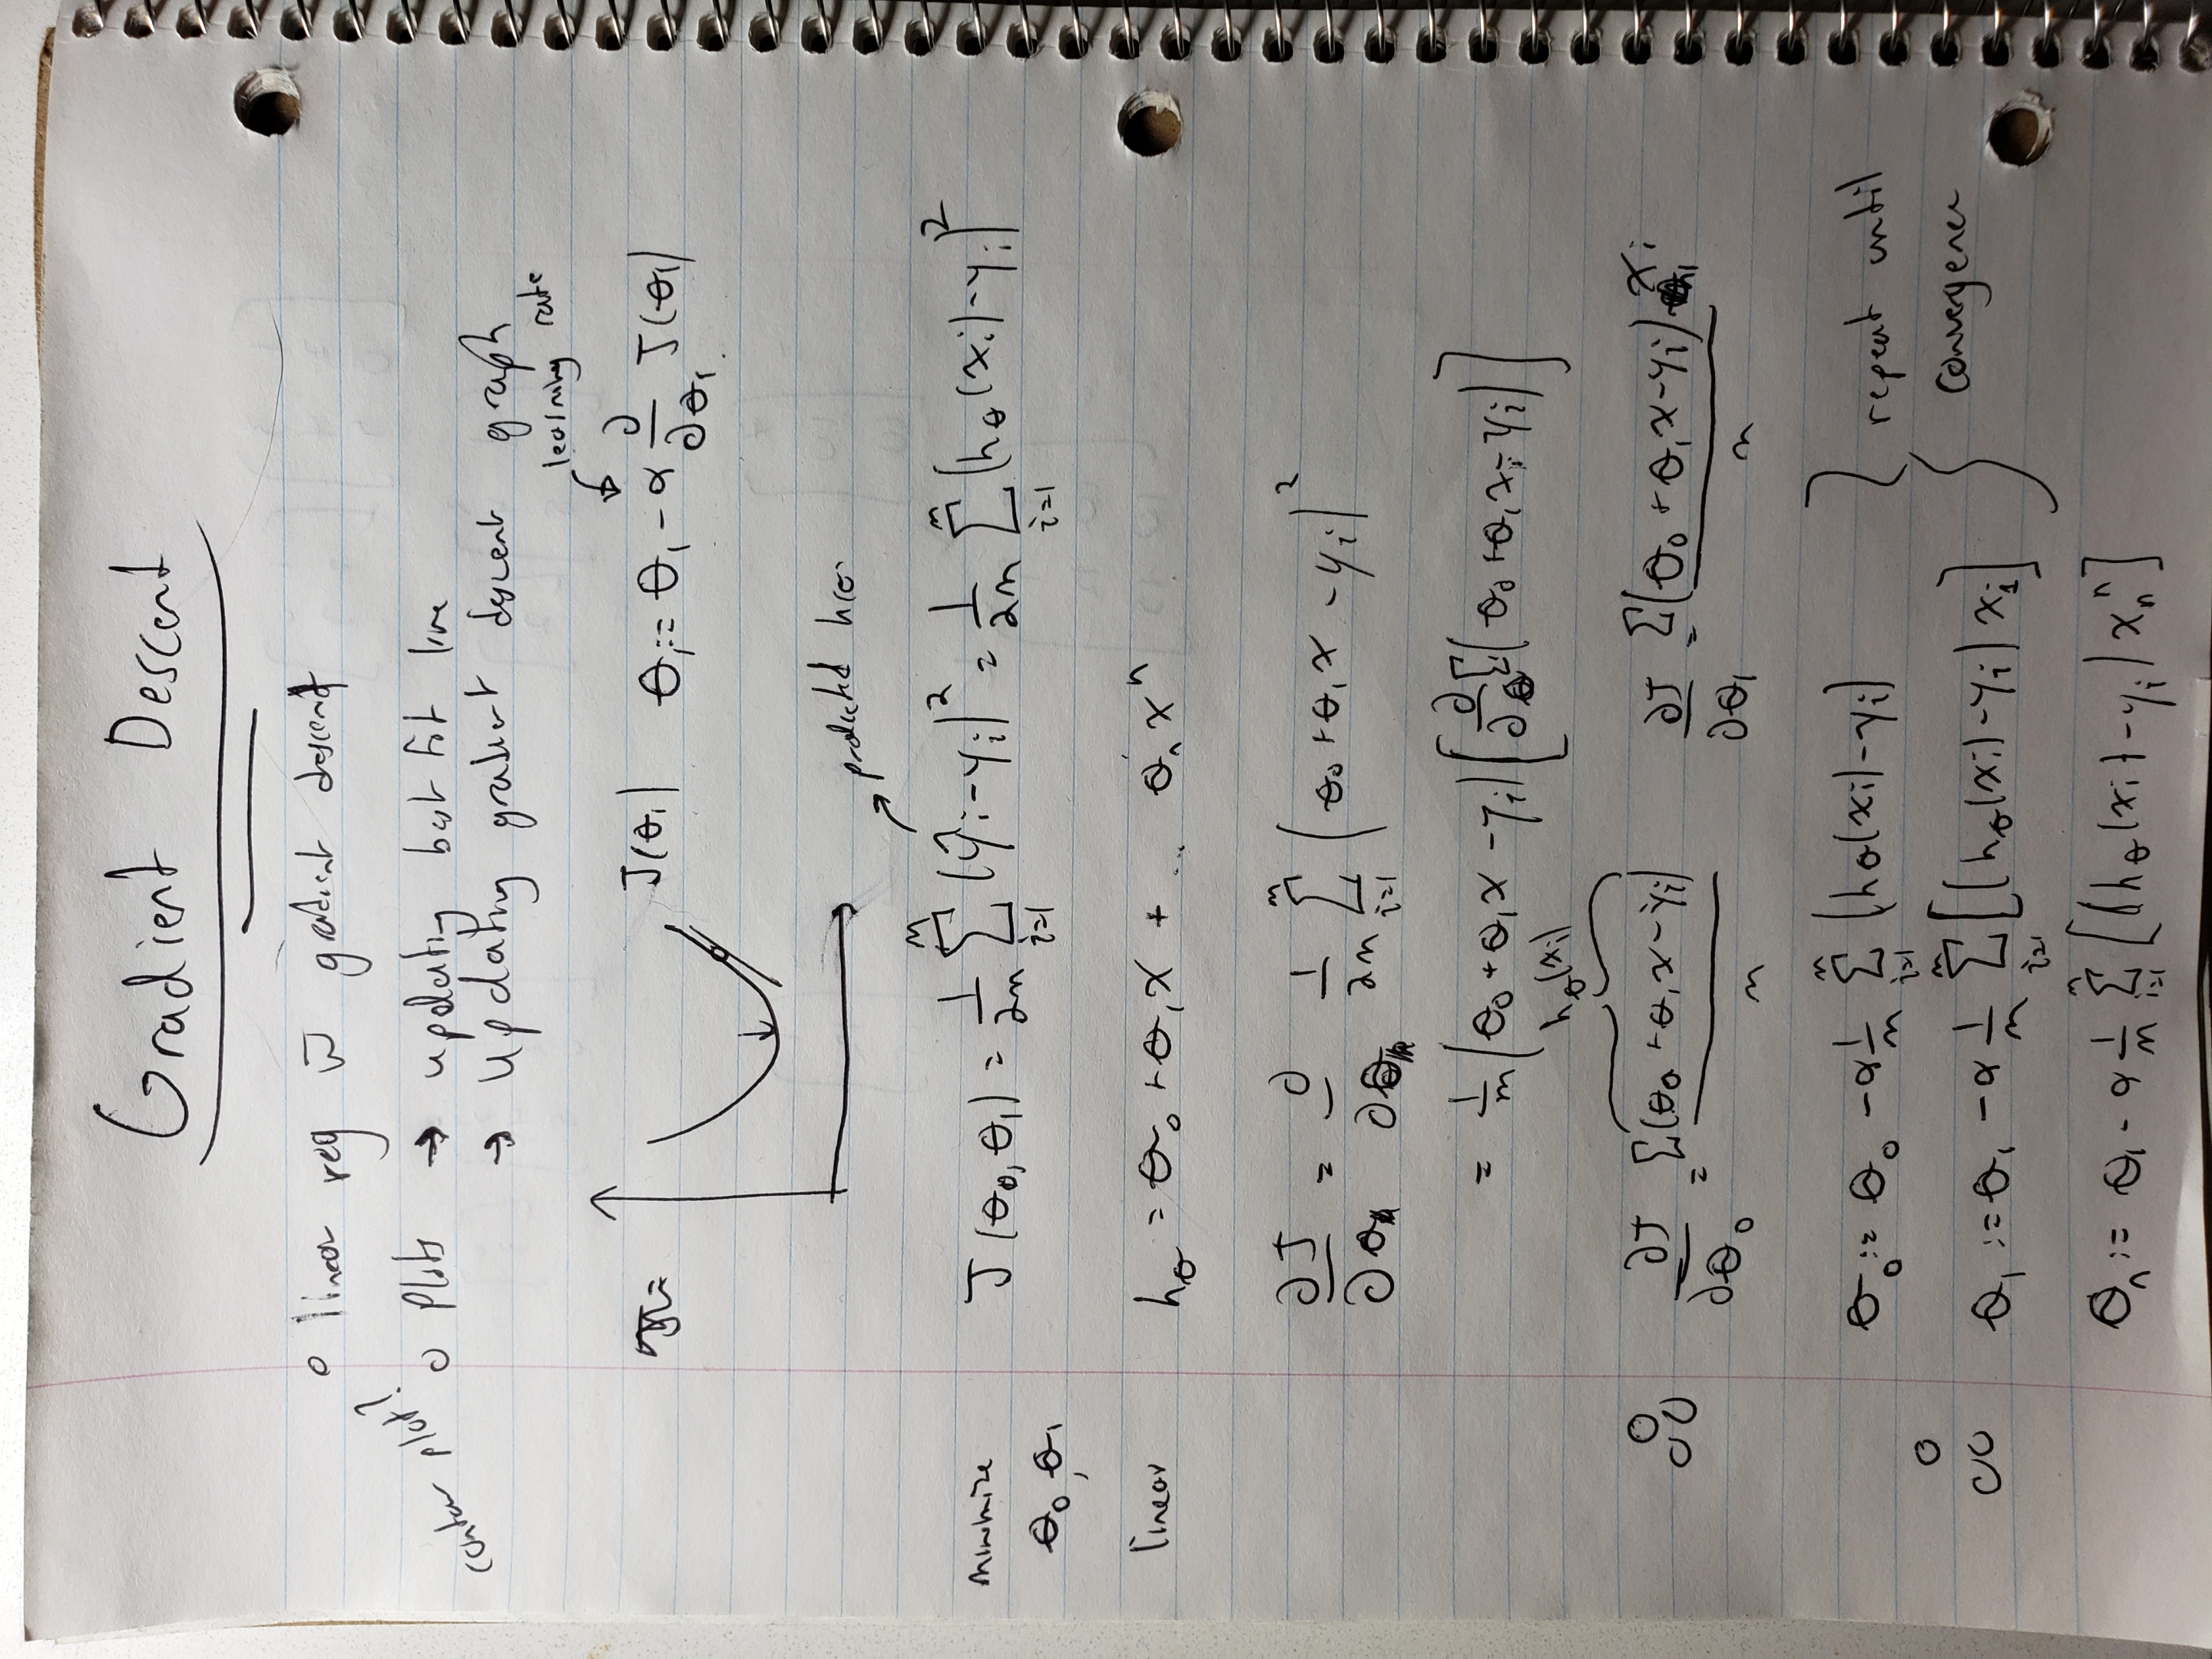 Gradient Descent
○ linear reg w̄ gradient descent
contour plot?
○ Plots → updating best fit line
→ updating gradient descent graph
learning rate
J(θ₁) θ₁ := θ₁ - α ∂/∂θ₁ J(θ₁)
predicted h(θ
minimize θ₀, θ₁
J(θ₀, θ₁) = 1/2m ∑ᵢ₌₁ᵐ (ŷᵢ - yᵢ)² = 1/2m ∑ᵢ₌₁ᵐ (h_θ(xᵢ) - yᵢ)²
linear h_θ = θ₀ + θ₁x + ... θₙxⁿ
∂J/∂θ = ∂/∂θ 1/2m ∑ᵢ₌₁ᵐ (θ₀ + θ₁x - yᵢ)²
= 1/m (θ₀ + θ₁x - yᵢ) [∂/∂θ ∑(θ₀ + θ₁xᵢ - yᵢ)]
h_θ(xᵢ)
∂J/∂θ₀ = ∑(θ₀ + θ₁x - yᵢ)/m ∂J/∂θ₁ = ∑(θ₀ + θ₁x - yᵢ) · xᵢ/m
θ₀ := θ₀ - α 1/m ∑ᵢ₌₁ᵐ (h_θ(xᵢ) - yᵢ)
repeat until
convergence
θ₁ := θ₁ - α 1/m ∑ᵢ₌₁ᵐ [(h_θ(xᵢ) - yᵢ) xᵢ]
θₙ := θ₁ - α 1/m ∑ᵢ₌₁ᵐ [(h_θ(xᵢ) - yᵢ) xₙⁿ]